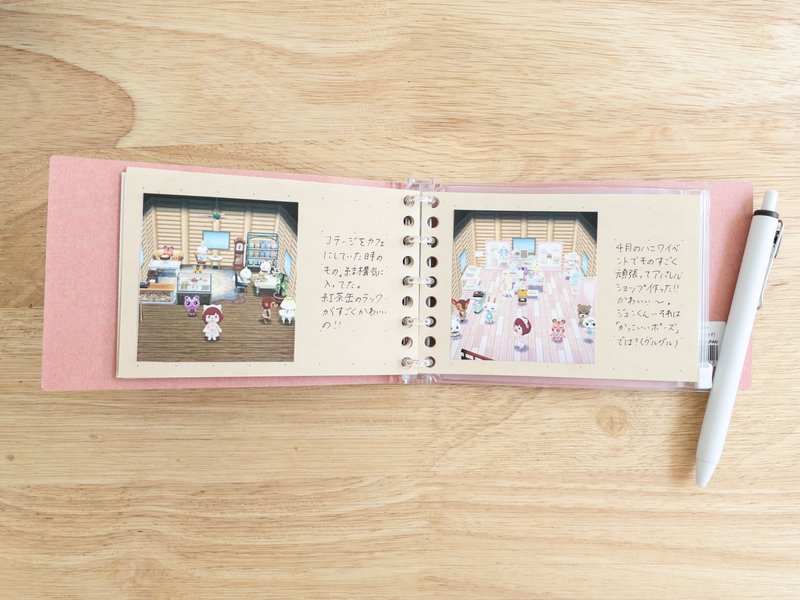 コテージをカフェ
にしていた時の
もの。結構気に
入ってた。
紅茶缶のラック
がすごくかわいい
の!!
4月のハニワイベ
ントでものすごく
頑張ってアパレル
ショップ作った!!
かわいい〜。
ジュンくん…それは
「かっこいいポーズ」
では?(グルグル)
PAN